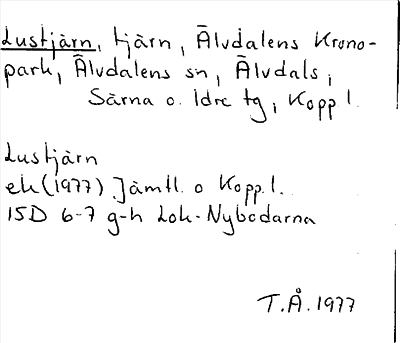 Lustjärn, tjärn, Älvdalens Krono-
park, Älvdalens sn, Älvdals,
Särna o. Idre tg, Kopp l.
Lustjärn
ek (1977) Jämtl. o Kopp. l.
15D 6-7 g-h Lok-Nybodarna
T.Å. 1977